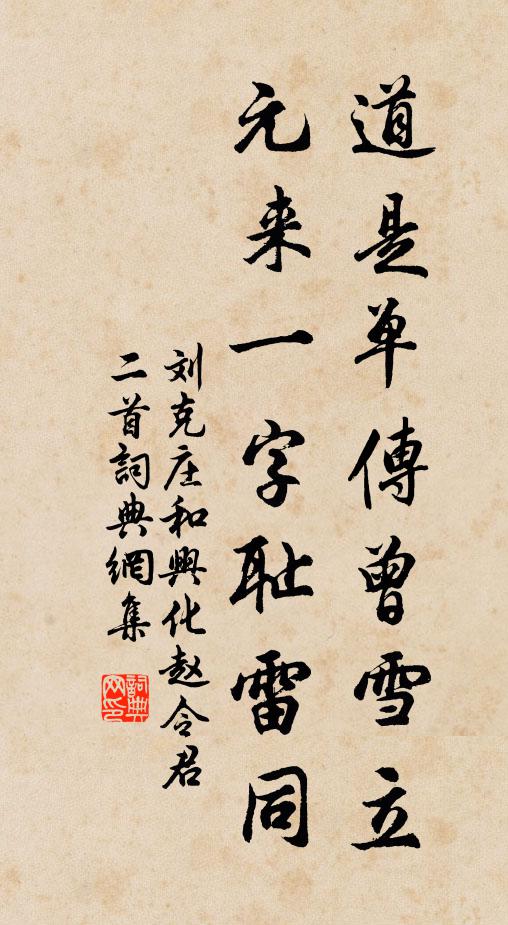 道是单傳曾雪立
元来一字耻雷同
刘克庄和興化赵令君
二首詞典網集
詞典
网印